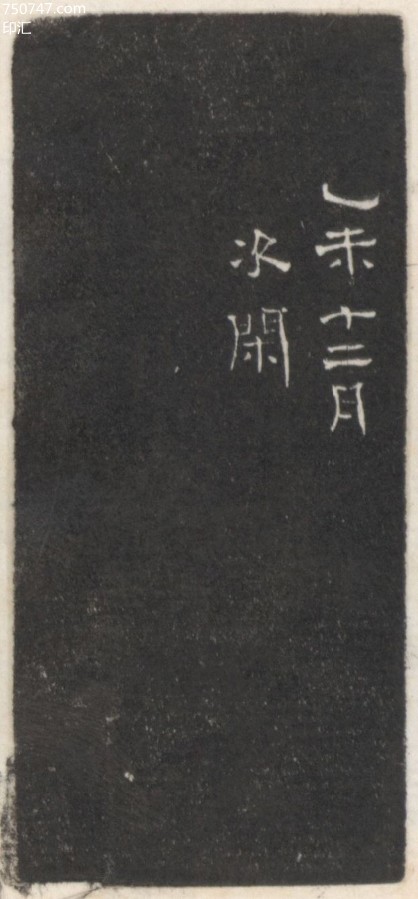 750747.com
印汇
乙未十二月
次閑